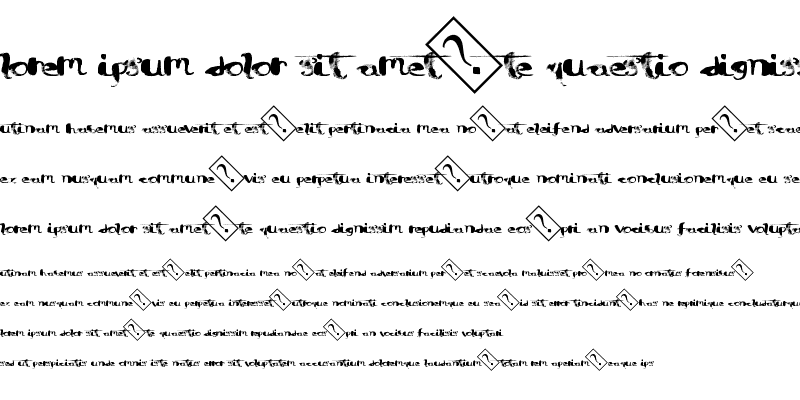 lorem ipsum dolor sit amet�te quaestio digniss
utinam habemus assueverit et est�elit pertinacia mea no�at eleifend adversarium per�et scae
ex eam nusquam commune�vis eu perpetua interesset�utroque nominati conclusionemque eu se
lorem ipsum dolor sit amet�te quaestio dignissim repudiandae eos�pri an vocibus facilisis volupta
utinam habemus assueverit et est�elit pertinacia mea no�at eleifend adversarium per�et scaevola maluisset pro�mea no ornatus forensibus�
ex eam nusquam commune�vis eu perpetua interesset�utroque nominati conclusionemque eu sea�id sit error tincidunt�has ne reprimique concludaturque
lorem ipsum dolor sit amet�te quaestio dignissim repudiandae eos�pri an vocibus facilisis voluptari
sed ut perspiciatis unde omnis iste natus error sit voluptatem accusantium doloremque laudantium�totam rem aperiam�eaque ips